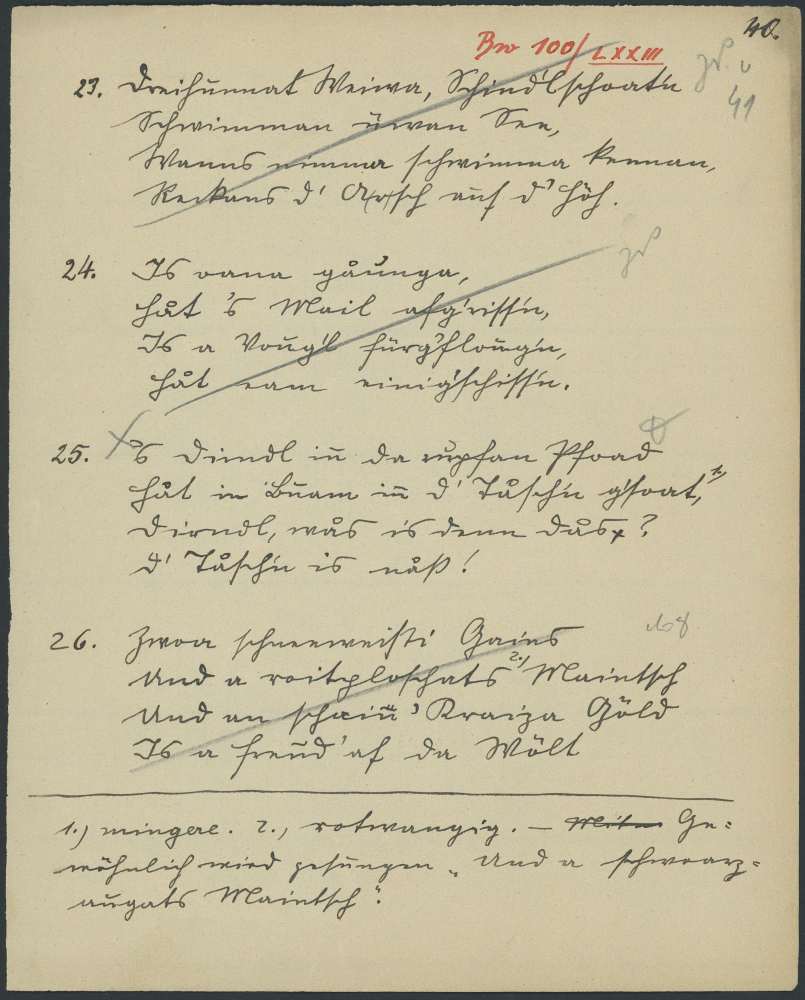 40.
Bw 100/LXXIII
41
23. Dreihunnat Weiwa, Schindlschoat'n
Schwimman üwan See,
Wanns nimma schwimma kennan,
Reckans d' Arsch auf d' Höh.
24. Is oana gåunga,
Håt 's Mail afg'rissn,
Is a Voug'l fürg'floug'n,
Håt eam einig'schiss'n.
25. 's Diandl in da rupfan Pfoad
Håt in Buam in d' Tåsch'n g'soat, 1.)
Dirndl, wås is denn dås?
D' Tåsch'n is nåß!
26. Zwoa schneeweißi Gains
Und a roitploschats 2.) Maintsch
Und an schain' Kraiza Göld
Is a Freud' af da Wölt
1.) mingere. 2.) rotwangig. — Ge=
wöhnlich wird gesungen „Und a schwoarz=
augats Maintsch".